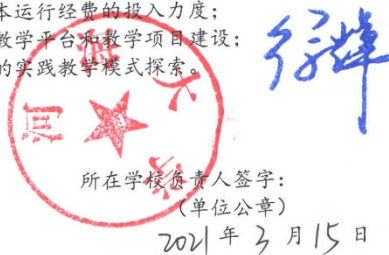 本运行经费的投入力度；
教学平台和教学项目建设；
的实践教学模式探索。
河海大学
所在学校负责人签字：
（单位公章）
2021年3月15日